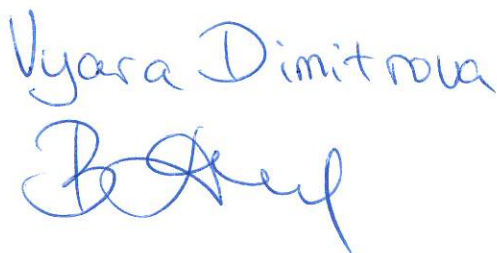 Vyara Dimitrova